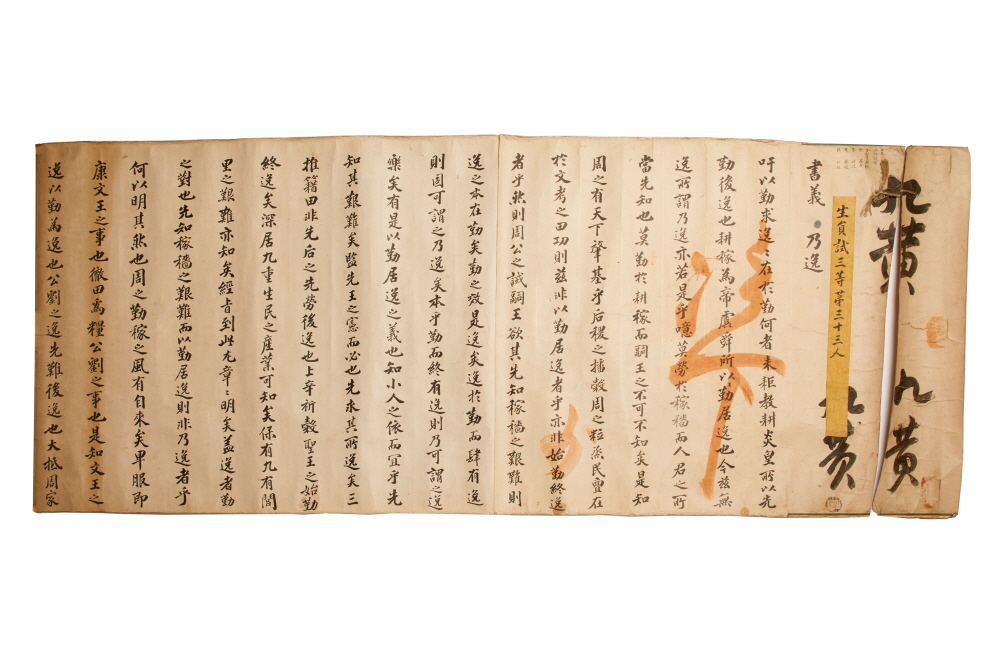 九黃
九黃
生員試三等第三十三人
書義 乃逸
吁以勤求逸逸在於勤何者耒耟敎耕炎皇所以先
勤後逸也耕稼爲帝虞舜所以勤居逸也今玆無
逸所謂乃逸亦若是乎噫莫勞於稼穡而人君之所
當先知也莫勤於耕稼而嗣王之不可不知矣是知
周之有天下肇基乎后稷之播穀周之粒烝民亶在
於文考之田功則玆非以勤居逸者乎亦非始勤終逸
者乎然則周公之誡嗣王欲其先知稼穡之艱難則
逸之本在勤矣勤之效是逸矣逸於勤而肆有逸
則固可謂之乃逸矣本乎勤而終有逸則乃可謂之逸
樂矣有是以勤居逸之義也知小人之依而宜乎先
知其艱難矣監先王之憲而必也先求其所逸矣三
推籍田非先后之先勞後逸也上辛祈穀聖王之始勤
終逸矣深居九重生民之産業可知矣保有九有閭
里之艱難亦知矣經旨到此尤章章明矣盖逸者勤
之對也先知稼穡之艱難而以勤居逸則非乃逸者乎
何以明其然也周之勤稼之風有自來矣卑服卽
康文王之事也徹田爲糧公劉之事也是知文王之
逸以勤爲逸也公劉之逸先難後逸也大抵周家